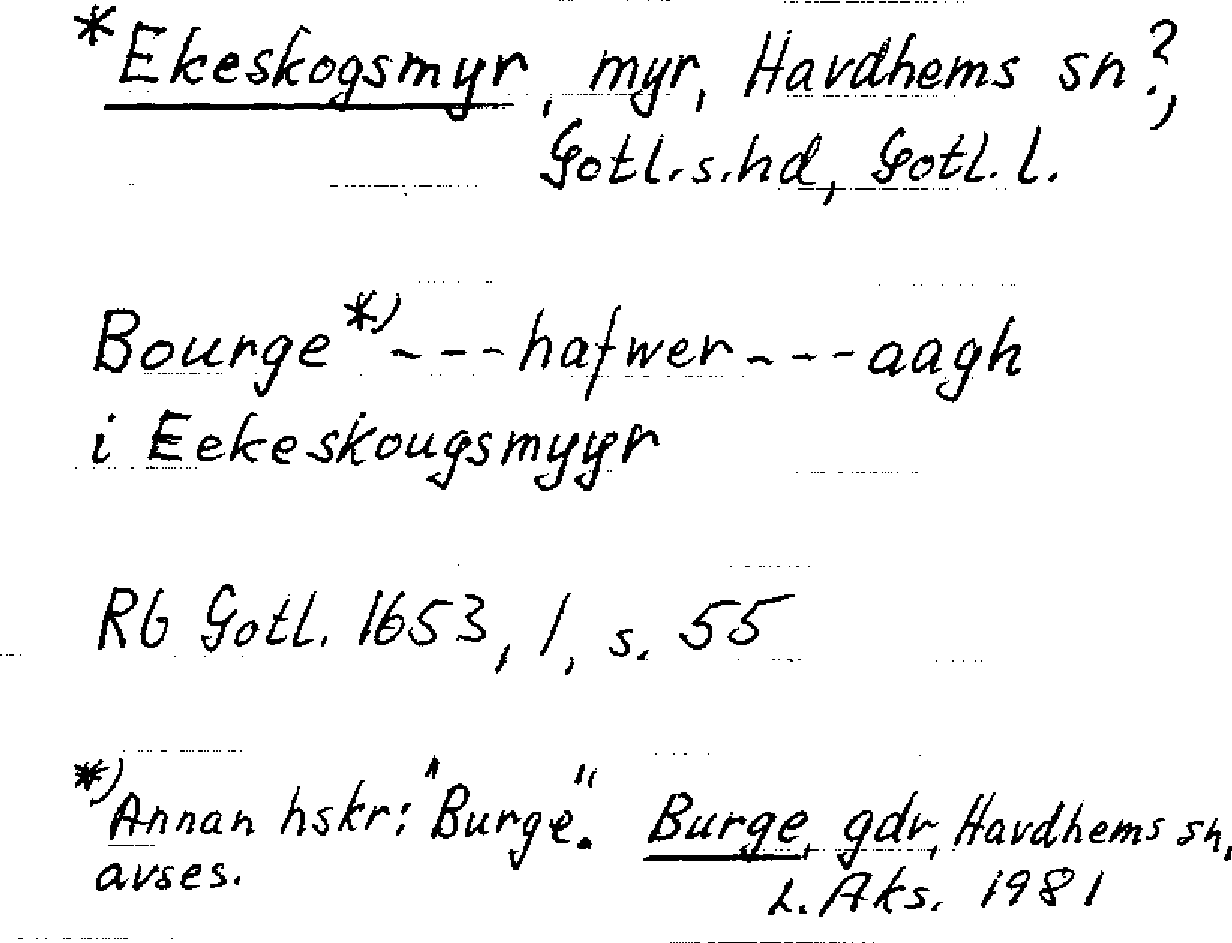 *Ekeskogsmyr, myr, Havdhems sn?,
Gotl.s.hd, Gotl. l.
Bourge*) --- hafwer --- aagh
i Eekeskougsmyyr
Rb Gotl. 1653, 1, s. 55
*) Annan hskr: "Burge". Burge, gdr, Havdhems sn,
avses. L. Aks. 1981